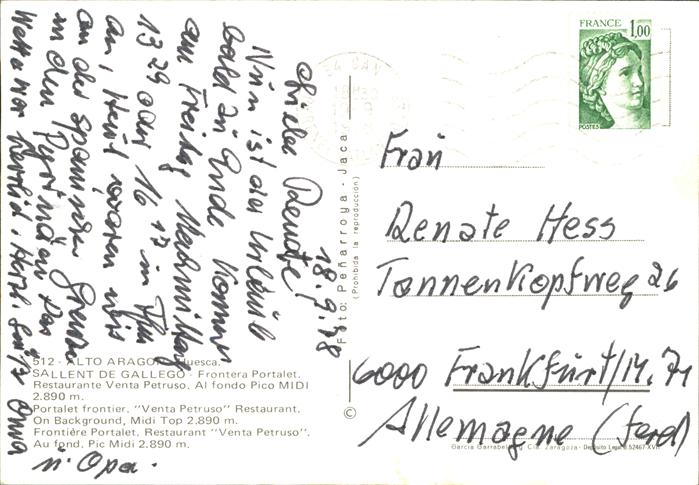 18.9.78
Liebe Renate!
Nun ist der Urlaub
bald zu Ende kommen
am Freitag Nachmittag
13 29 oder 16 13 in Ffm
an, Heut waren wir
an der spanischen Grenze
in den Pyrinäen Das
Wetter war herrlich. Herzl. Grüße Oma
u. Opa.
FRANCE 1,00
POSTES
Frau
Renate Hess
Tannenkopfweg 26
6000 Frankfurt/M. 71
Allemagne (ferd)
Foto: Peñarroya - Jaca
(Prohibida la reproducción)
©
512 - ALTO ARAGON Huesca.
SALLENT DE GALLEGO - Frontera Portalet.
Restaurante Venta Petruso. Al fondo Pico MIDI
2.890 m.
Portalet frontier, "Venta Petruso" Restaurant.
On Background, Midi Top 2.890 m.
Frontière Portalet, Restaurant "Venta Petruso".
Au fond, Pic Midi 2.890 m.
García Garrabella y Cía. Zaragoza.- Depósito Legal B.52467-XVII